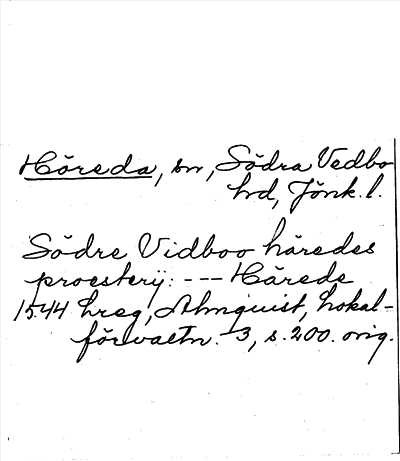 Höreda, sn, Södra Vedbo
hd, Jönk. l.
Södre Vidboo häredes
proesterij: --- Härede
1544 hreg, Almquist, Lokal-
förvaltn. 3, s. 200. orig.